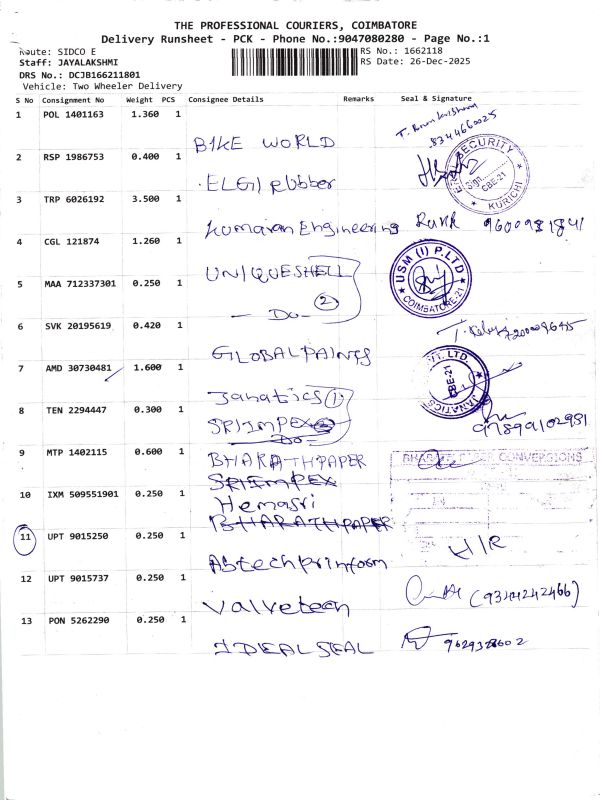 THE PROFESSIONAL COURIERS, COIMBATORE
Delivery Runsheet - PCK - Phone No.:9047080280 - Page No.:1
Route: SIDCO E
RS No.: 1662118
Staff: JAYALAKSHMI
RS Date: 26-Dec-2025
DRS No.: DCJB166211801
Vehicle: Two Wheeler Delivery
S No Consignment No Weight PCS Consignee Details Remarks Seal & Signature
1 POL 1401163 1.360 1
8344660025
BIKE WORLD
2 RSP 1986753 0.400 1
SECURITY
Sign
CBE-21
KURICHI
ELGI rubber
3 TRP 6026192 3.500 1
Kumaran Engineering
4 CGL 121874 1.260 1
UNIQUESHELL
USM (I) P.LTD
COIMBATORE-21
5 MAA 712337301 0.250 1
2
- Do -
6 SVK 20195619 0.420 1
GLOBAL PAINTS
7 AMD 30730481 1.600 1
VT. LTD.
CBE-21
JANATICS
Janatics 1
8 TEN 2294447 0.300 1
SRI IMPEX
Do
9 MTP 1402115 0.600 1
BHARATHPAPER
CONVERSIONS
SRI IMPEX
10 IXM 509551901 0.250 1
Hemasri
BHARATHPAPER
11 UPT 9015250 0.250 1
H/R
Abtech prinform
12 UPT 9015737 0.250 1
(9344242466)
Valvetech
13 PON 5262290 0.250 1
IDEAL SEAL